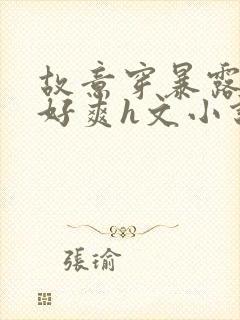 故意穿暴露
好爽h文小
張瑜